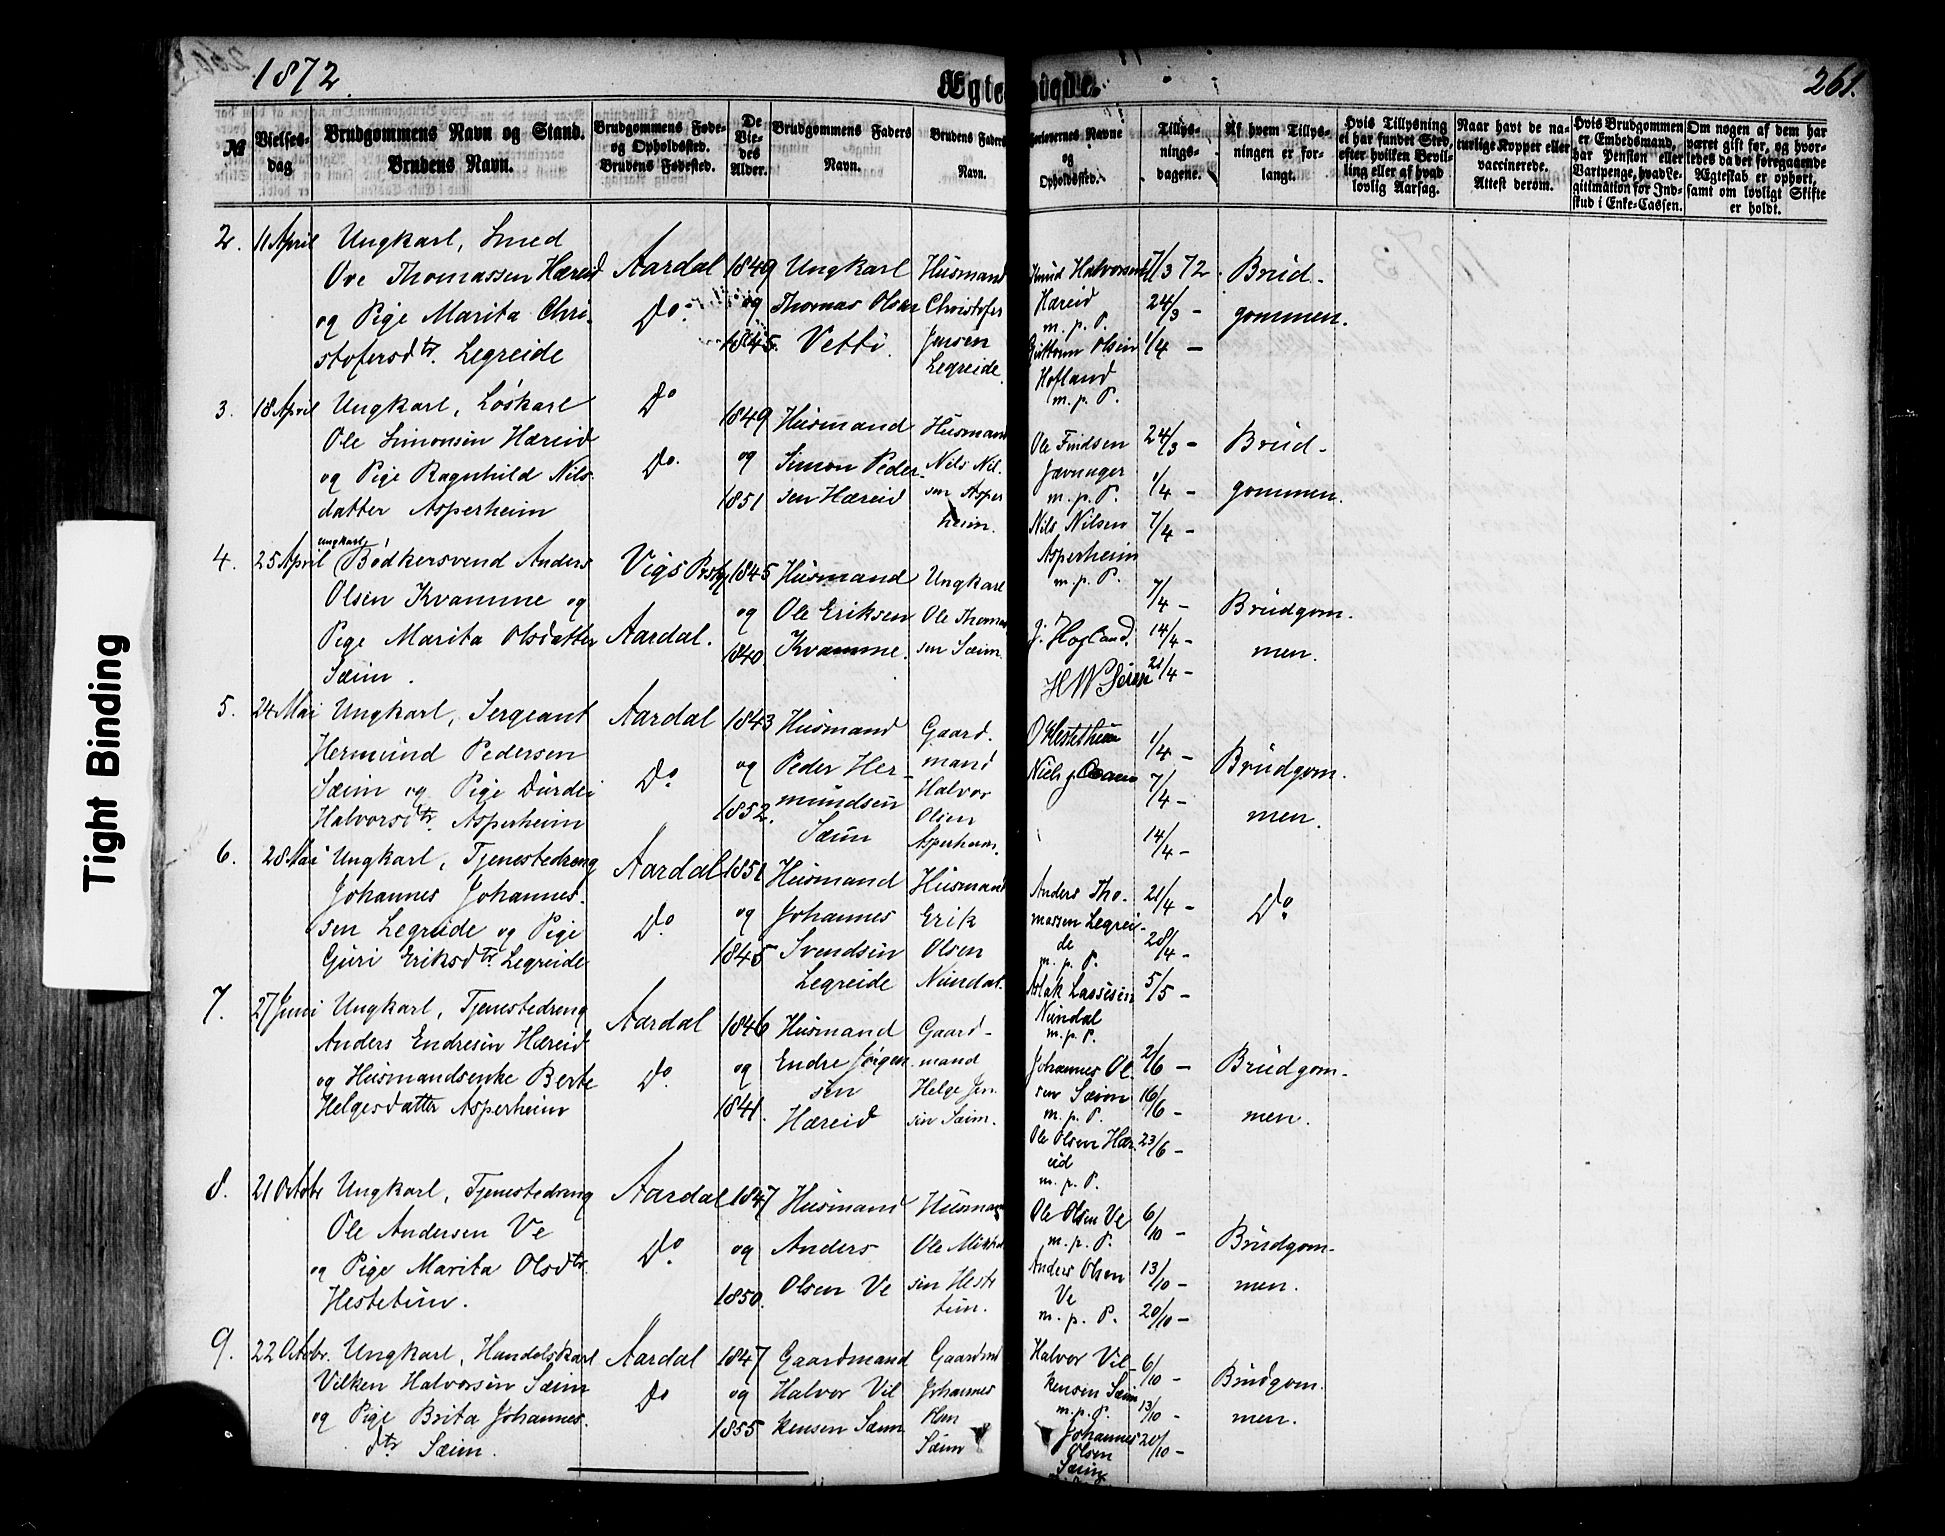 1872.
Ægteviede.
261.
№
Vielses-
dag
Brudgommens Navn og Stand.
Brudens Navn.
Brudgommens Føde-
og Opholdssted.
Brudens Fødested.
De
Vie-
des
Alder.
Brudgommens Faders
Navn.
Brudens Faders
Navn.
Forlovernes Navne
og
Opholdssted.
Tillys-
nings-
dagene.
Af hvem Tillys-
ningen er for-
langt.
Hvis Tillysning
ei har fundet Sted,
efter hvilken Bevil-
ling eller af hvad
lovlig Aarsag.
Naar havt de na-
turlige Kopper eller
vaccinerede.
Attest derom.
Hvis Brudgommen
er Embedsmand,
har Pension eller
Vartpenge, hvad Le-
gitimation for Ind-
skud i Enke-Cassen.
Om nogen af dem har
været gift før, og hvor-
ledes da det foregaaende
Ægteskab er ophørt,
samt om lovligt Skifte
er holdt.
2.
11 April
Ungkarl, Smed
Ove Thomassen Hæreid
og Pige Marita Chri-
stofersdtr. Legreide
Aardal
Do.
1849
og
1845.
Ungkarl
Thomas Olsen
Vetti
Husmand
Christofer
Jensen
Legreide
Knud Halvorsen
Hæreid
m. p. P.
Guttorm Olsen
Hofland
m. p. P.
17/3 72.
24/3 -
1/4 -
Brud-
gommen.
3.
18 April
Ungkarl, Løskarl
Ole Simonsen Hæreid
og Pige Ragnhild Nils-
datter Asperheim
Do
Do.
1849
og
1851
Husmand
Simon Peder-
sen Hæreid
Husmand
Nils Nil-
sen Asper
heim.
Ole Findsen
Jævnager
m. p. P.
Nils Nilsen
Asperheim
m. p. P.
24/3 -
1/4 -
7/4 -
Brud-
gommen.
4.
25 April
ungkarl
Bødkersvend Anders
Olsen Kvamme og
Pige Marita Olsdatter
Sæim.
Vigs Prstgj
Aardal.
1845
og
1840
Husmand
Ole Eriksen
Kvamme.
Ungkarl
Ole Thomas
sen Sæim.
J. Hogland.
H W Seren
7/4 -
14/4 -
21/4 -
Brudgom-
men.
5.
24 Mai
Ungkarl, Sergeant
Hermund Pedersen
Sæim og Pige Durdei
Halvorsdtr. Asperheim
Aardal
Do
1843
og
1852.
Husmand
Peder Her-
mundsen
Sæim
Gaard-
mand
Halvor
Olsen
Asperheim.
O Hestethun
1/4 -
7/4 -
14/4 -
Brudgom-
men.
6.
28 Mai
Ungkarl, Tjenestedreng
Johannes Johannes-
sen Legreide og Pige
Guri Eriksdtr Legreide
Aardal
Do.
1851
og
1845
Husmand
Johannes
Svendsen
Legreide
Husmand
Erik
Olsen
Nundal.
Anders Tho-
massen Legrei-
de
m. p. P.
Aslak Lassesen
Nundal
m. p. P.
21/4 -
28/4 -
5/5 -
Do
7.
27 Juni
Ungkarl, Tjenestedreng
Anders Endresen Hæreid
og Husmandsenke Berte
Helgesdatter Asperheim
Aardal
Do.
1846
og
1841.
Husmand
Endre Jørgen-
sen
Hæreid
Gaard-
mand
Helge Jen
sen Sæim.
Johannes Ol-
sen Sæim
m. p. P.
Ole Olsen Hær-
eid
m. p. P.
2/6 -
16/6 -
23/6 -
Brudgom-
men.
8.
21 Octobr
Ungkarl, Tjenestedreng
Ole Andersen Ve
og Pige Marita Olsdtr.
Hestetun.
Aardal
Do.
1847
og
1850.
Husmand
Anders
Olsen Ve
Husman
Ole Mikkel
sen Heste
tun.
Ole Olsen Ve
m. p. P.
Anders Olsen
Ve
m. p. P.
6/10 -
13/10 -
20/10 -
Brudgom-
men.
9.
22 Octobr.
Ungkarl, Handelskarl
Vilken Halvorsen Sæim
og Pige Brita Johannes-
dtr Sæim.
Aardal
Do
1847
og
1855
Gaardmand
Halvor Vil
kensen Sæim
Gaardmd
Johannes
Olsen
Sæim
Halvor Vil-
kensen Sæim
m. p. P.
Johannes
Olsen
Sæim
6/10 -
13/10 -
20/10 -
Brudgom-
men.
Tight Binding